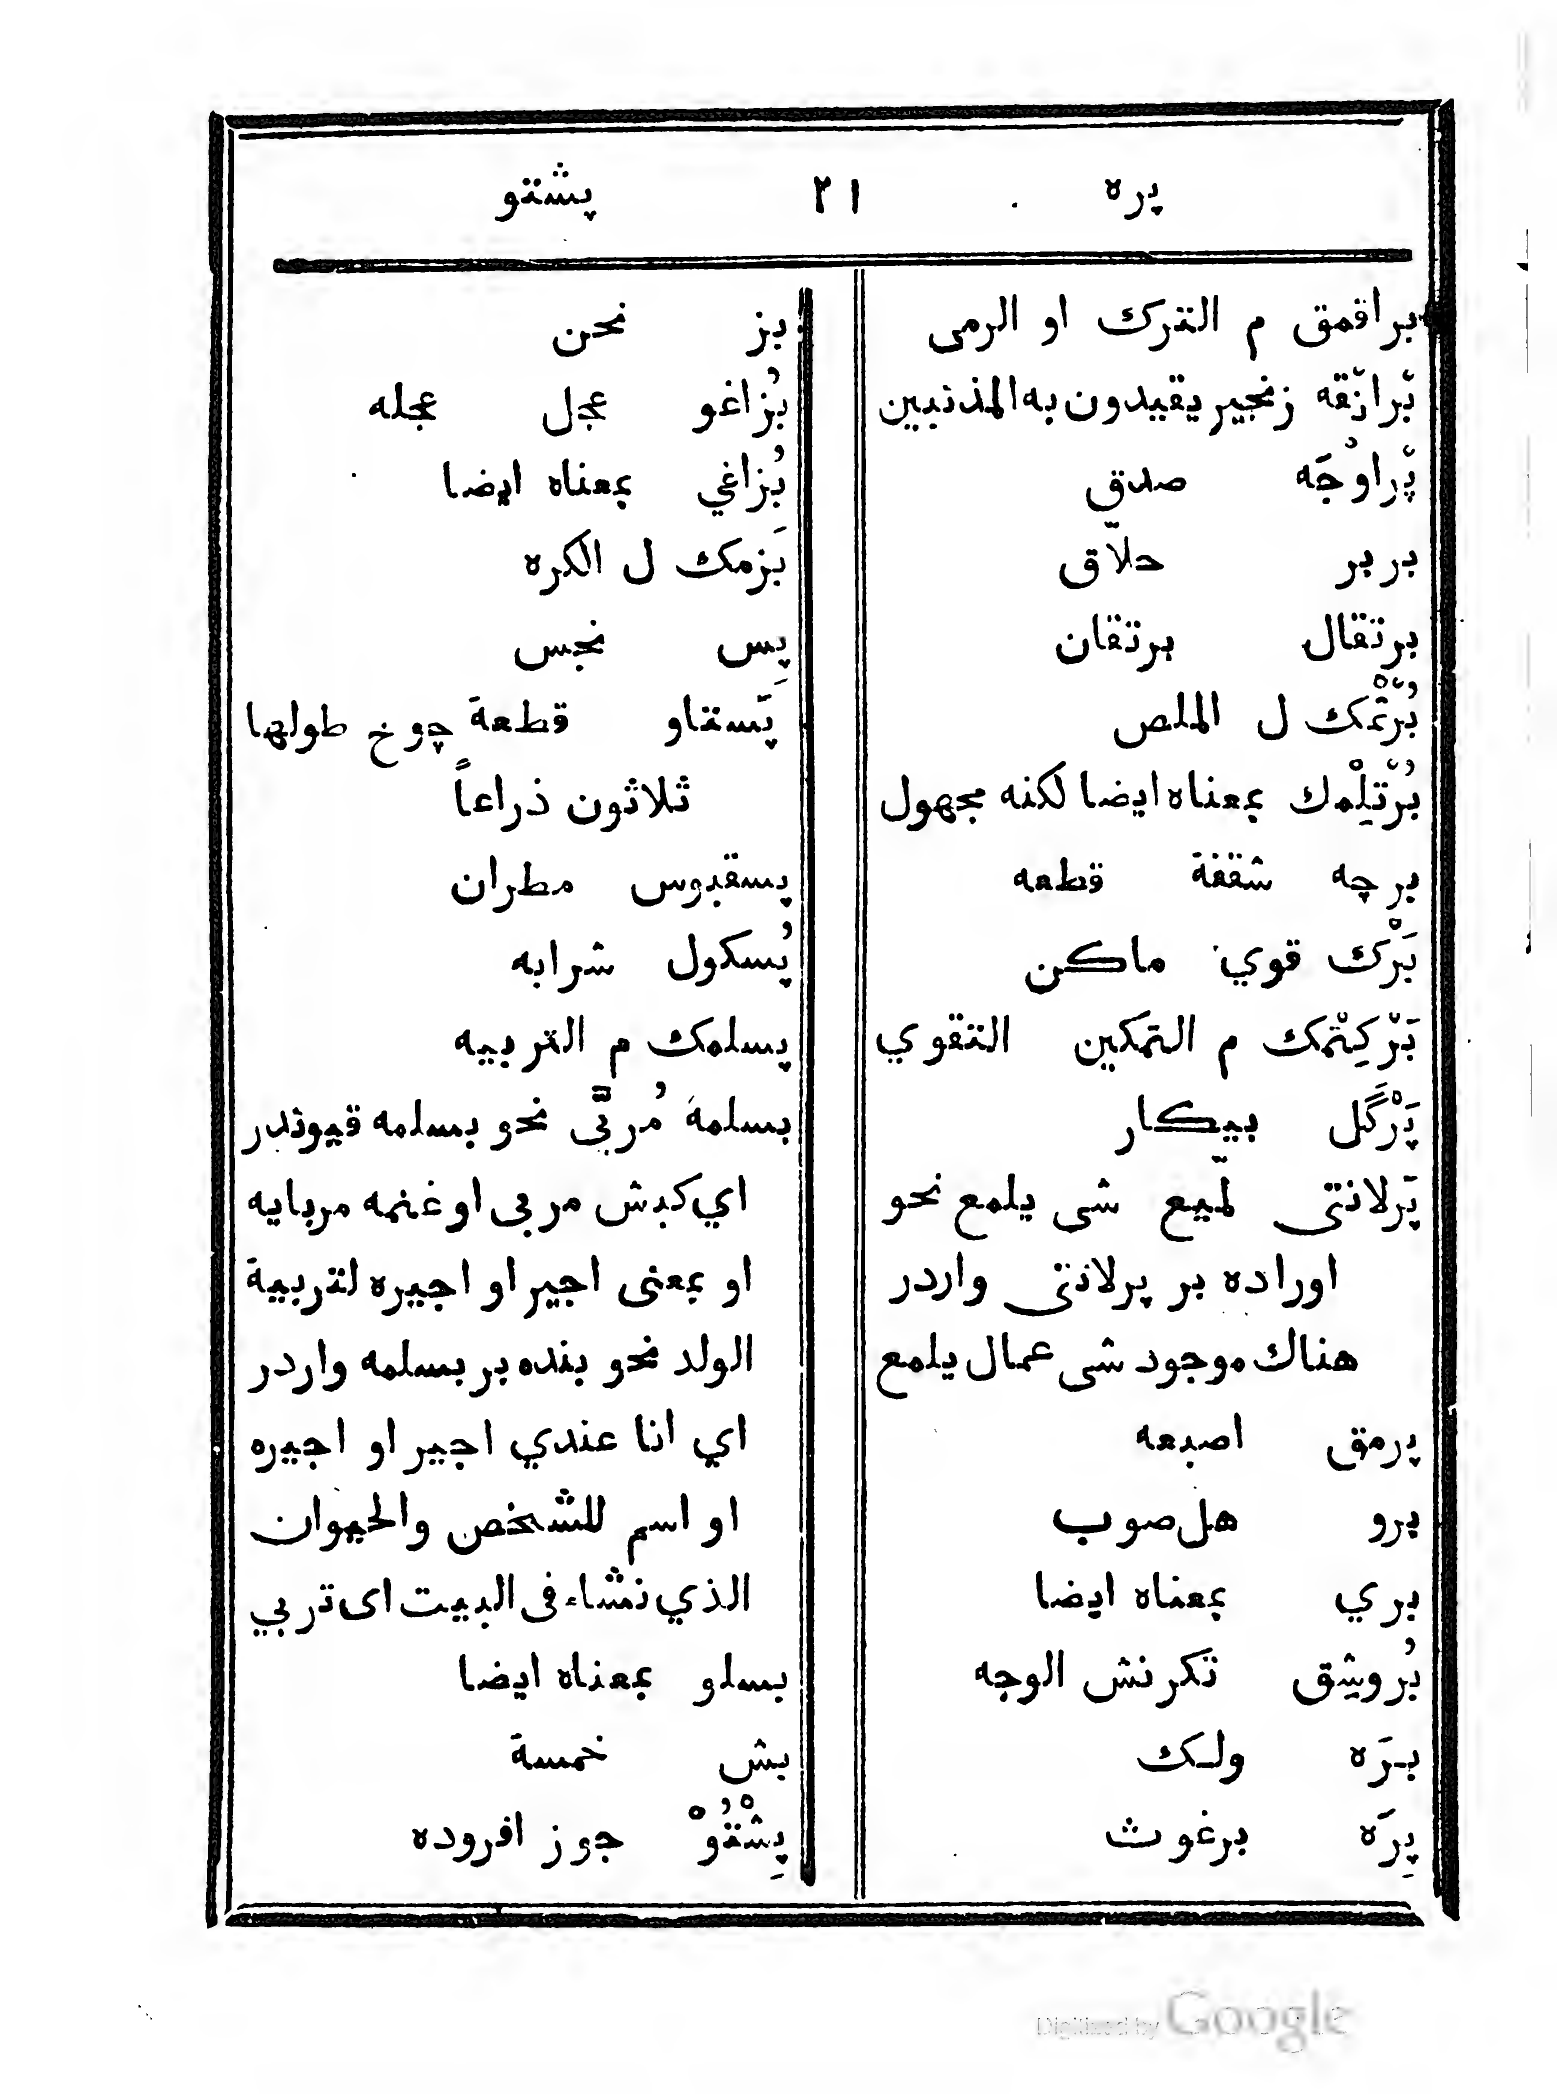 پره ٢١ پشتو
براقمق م الترك او الرمى
بْرانْقه زنجير يقيدون به المذنبين
پْراوُجَه صدق
بربر حلاّق
برتقال برتقان
بُرْتْمك ل الملص
بُرْتلِمْك بمعناه ايضا لكنه مجهول
برچه شقفة قطعه
بَرْك قوي ماكن
بَرْكِتْمك م التمكين التقوي
پَرْگَل بيكار
پَرلانتى لمّيع شى يلمع نحو
اوراده بر پرلانتى واردر
هناك موجود شى عمال يلمع
پرمق اصبعه
برو هل صوب
بري بمعناه ايضا
بُروشِق تكرنش الوجه
بـرَه ولـك
پِرَه برغوث
بز نحن
بُزاغو عجل عجله
بُزاغي بمعناه ايضا
بَزمك ل الكره
پِس نجس
پَستاو قطعة چوخ طولها
ثلاثون ذراعاً
پسقبوس مطران
پُسكول شرابه
پسلمك م التربيه
بسلمهَ مُربَّى نحو بسلمه قيوندر
اي كبش مربى او غنمه مربايه
او بمعنى اجير او اجيره لتربية
الولد نحو بنده بر بسلمه واردر
اي انا عندي اجير او اجيره
او اسم للشخص والحيوان
الذي نشاء فى البيت اى تربي
بسلو بمعناه ايضا
بش خمسة
پِشْتُوْ جوز افروده
Digitized by Google